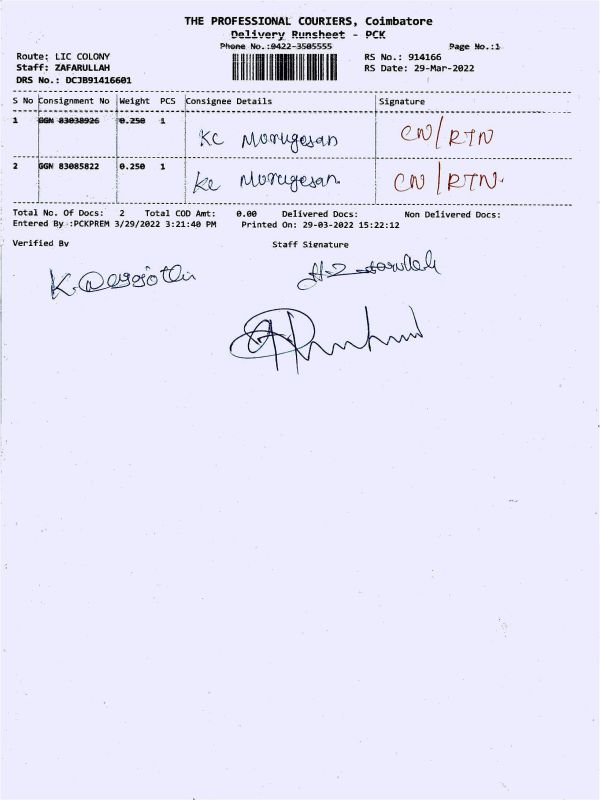 THE PROFESSIONAL COURIERS, Coimbatore
Delivery Runsheet - PCK
Phone No.:0422-3505555 Page No.:1
Route: LIC COLONY RS No.: 914166
Staff: ZAFARULLAH RS Date: 29-Mar-2022
DRS No.: DCJB91416601
S No Consignment No Weight PCS Consignee Details Signature
1 GGN 83038926 0.250 1 KC Morugesan CN/RTN
2 GGN 83085822 0.250 1 Ke Morugesan CN/RTN.
Total No. Of Docs: 2 Total COD Amt: 0.00 Delivered Docs: Non Delivered Docs:
Entered By :PCKPREM 3/29/2022 3:21:40 PM Printed On: 29-03-2022 15:22:12
Verified By Staff Signature